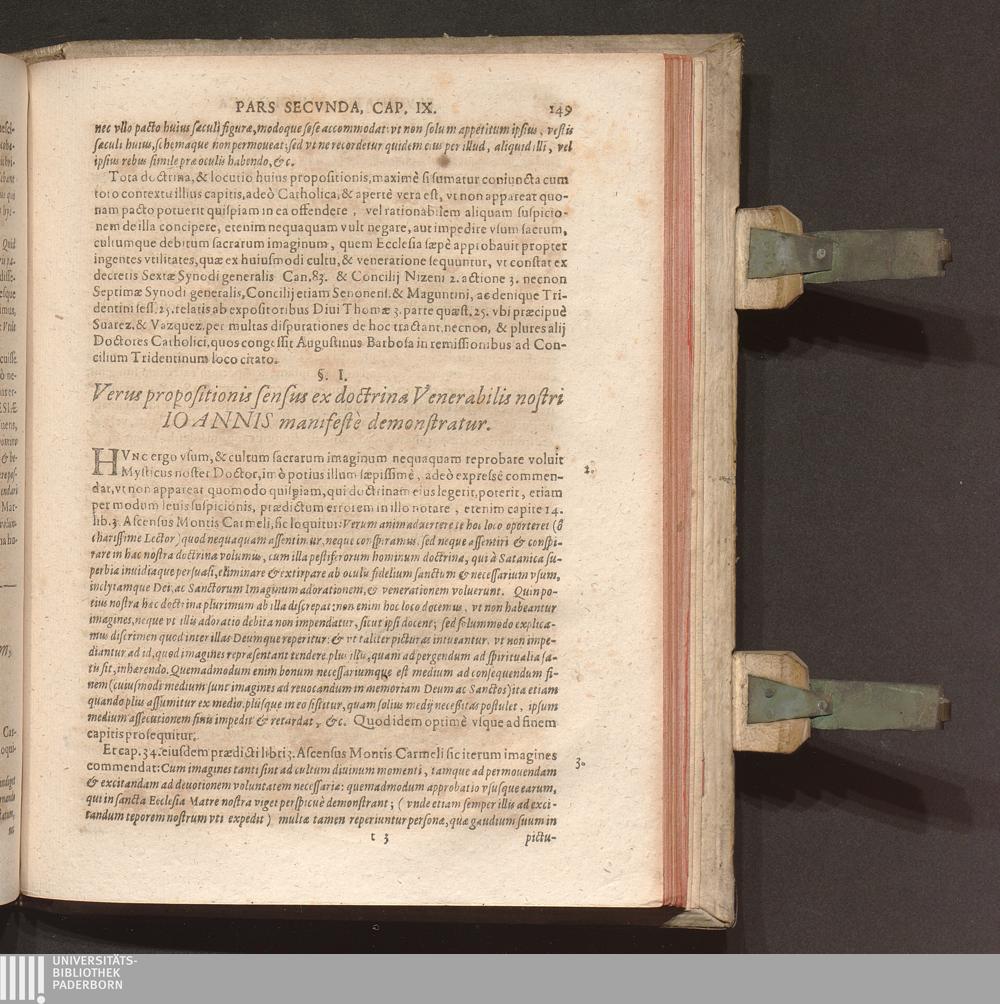 PARS SECVNDA, CAP. IX. 149
nec vllo pacto huius sæculi figuræ, modoque sese accommodat: vt non solum appetitum ipsius, vestis
sæculi huius, schemaque non permoueat; sed vt ne recordetur quidem eius per illud, aliquid illi, vel
ipsius rebus simile præ oculis habendo, &c.
Tota doctrina, & locutio huius propositionis, maximè si sumatur coniuncta cum
toto contextu illius capitis, adeò Catholica, & apertè vera est, vt non appareat quo-
nam pacto potuerit quispiam in ea offendere, vel rationabilem aliquam suspicio-
nem de illa concipere, etenim nequaquam vult negare, aut impedire vsum sacrum,
cultumque debitum sacrarum imaginum, quem Ecclesia sæpè approbauit propter
ingentes vtilitates, quæ ex huiusmodi cultu, & veneratione sequuntur, vt constat ex
decretis Sextæ Synodi generalis Can. 83. & Concilij Nizeni 2. actione 3. necnon
Septimæ Synodi generalis, Concilij etiam Senonens. & Maguntini, ac denique Tri-
dentini sess. 25. relatis ab expositoribus Diui Thomæ 3. parte quæst. 25. vbi præcipuè
Suarez. & Vazquez. per multas disputationes de hoc tractant, necnon, & plures alij
Doctores Catholici, quos congessit Augustinus Barbosa in remissionibus ad Con-
cilium Tridentinum loco citato.
§. I.
Verus propositionis sensus ex doctrina Venerabilis nostri
IOANNIS manifestè demonstratur.
HVNC ergo vsum, & cultum sacrarum imaginum nequaquam reprobare voluit
Mysticus noster Doctor, imò potius illum sæpissimè, adeò expressè commen-
dat, vt non appareat quomodo quispiam, qui doctrinam eius legerit, poterit, etiam
per modum leuis suspicionis, prædictum errorem in illo notare, etenim capite 14.
lib. 3. Ascensus Montis Carmeli, sic loquitur: Verum animaduertere te hoc loco oporteret (ô
charissime Lector) quod nequaquam assentimur, neque conspiramus, sed neque assentiri & conspi-
rare in hac nostra doctrina volumus, cum illa pestiferorum hominum doctrina, qui à Satanica su-
perbia inuidiaque persuasi, eliminare & extirpare ab oculis fidelium sanctum & necessarium vsum,
inclytamque Dei, ac Sanctorum Imaginum adorationem, & venerationem voluerunt. Quin po-
tius nostra hæc doctrina plurimum ab illa discrepat: non enim hoc loco docemus, vt non habeantur
imagines, neque vt illis adoratio debita non impendatur, sicut ipsi docent; sed solummodo explica-
mus discrimen quod inter illas Deumque reperitur: & vt taliter picturas intueantur, vt non impe-
diantur ad id, quod imagines repræsentant tendere plus illis, quam ad pergendum ad spiritualia sa-
tis sit, inhærendo. Quemadmodum enim bonum necessariumque est medium ad consequendum fi-
nem (cuiusmodi medium sunt imagines ad reuocandum in memoriam Deum ac Sanctos) ita etiam
quando plus assumitur ex medio, plusque in eo sistitur, quam solius medij necessitas postulet, ipsum
medium assecutionem finis impedit & retardat, &c. Quod idem optimè vsque ad finem
capitis prosequitur.
2.
Et cap. 34. eiusdem prædicti libri 3. Ascensus Montis Carmeli sic iterum imagines
commendat: Cum imagines tanti sint ad cultum diuinum momenti, tamque ad permouendam
& excitandam ad deuotionem voluntatem necessariæ: quemadmodum approbatio vsusque earum,
qui in sancta Ecclesia Matre nostra viget perspicuè demonstrant; (vnde etiam semper illis ad exci-
tandum teporem nostrum vti expedit) multæ tamen reperiuntur personæ, quæ gaudium suum in
3.
t 3 pictu-
UNIVERSITÄTS-
BIBLIOTHEK
PADERBORN